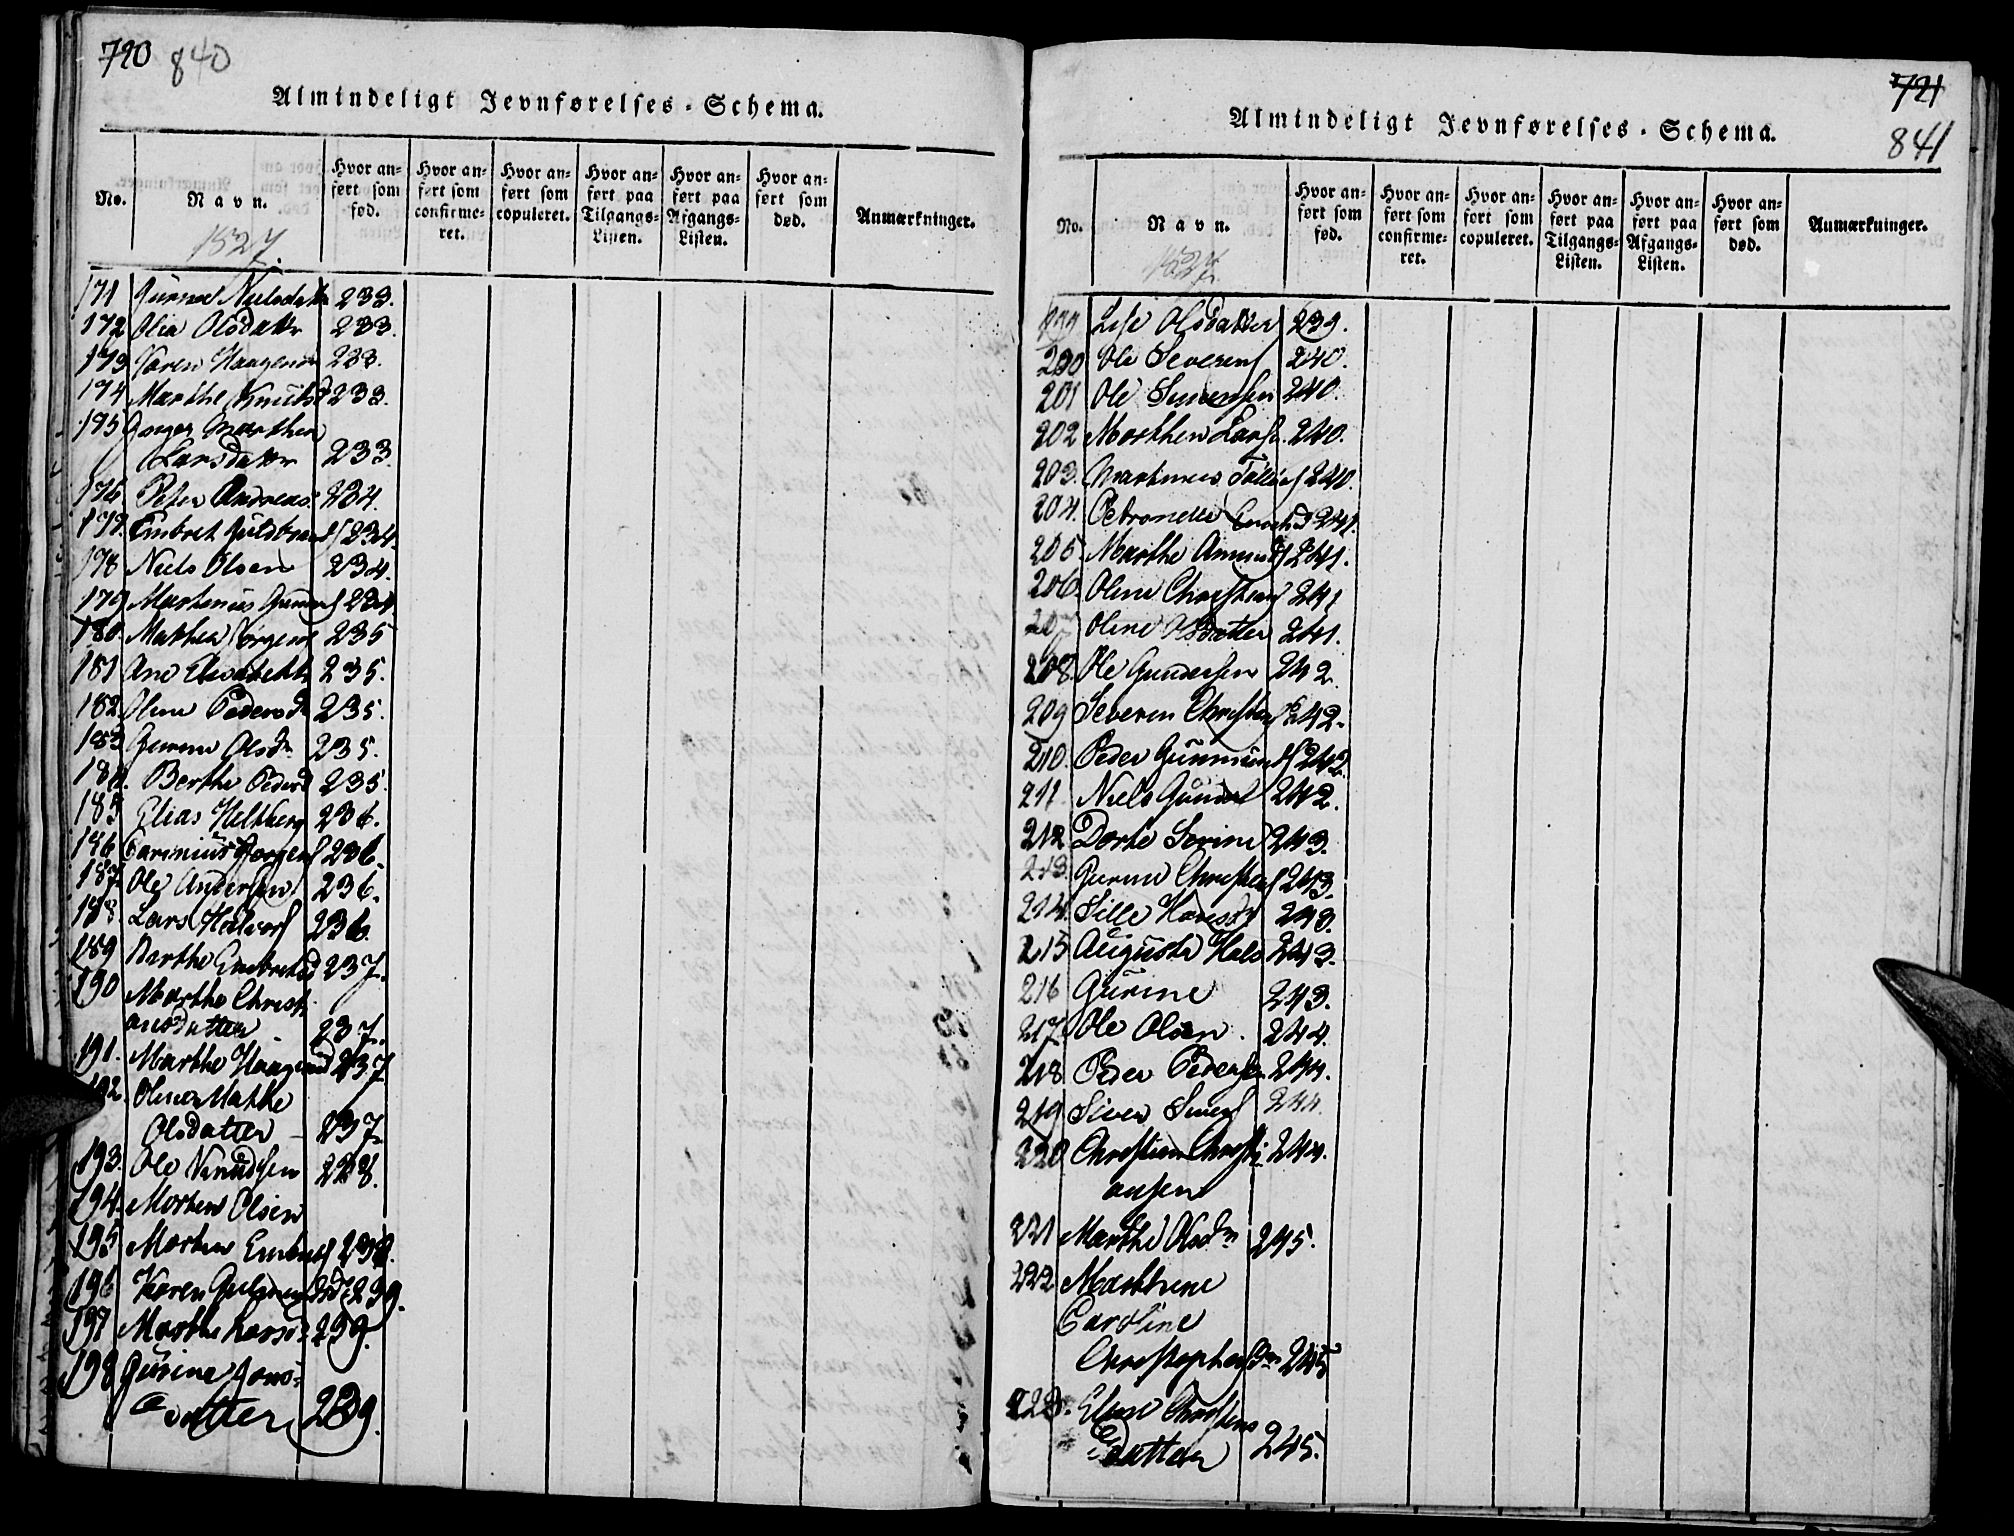 720 840
Almindeligt Jevnførelses-Schema.
No.
Navn.
Hvor anført som fød.
Hvor anført som confirmeret.
Hvor anført som copuleret.
Hvor anført paa Tilgangs-Listen.
Hvor anført paa Afgangs-Listen.
Hvor anført som død.
Anmærkninger.
1827.
171 Nielsdatr 233.
172 Olia Olsdattr 233.
173 Karen Haagens 233.
174 Marthe Knutsd 233.
175 Marthea
Larsdattr 233.
176 Peter Andreas 234.
177. Embret Guldbrands 234.
178 Niels Olsen 234.
179 Martinus 234.
180. Mathea Jörgens 235
181 Ane Elisabeth 235.
182 Oline Pedersdr 235.
183 Olsdr 235.
184. Berthe Pedersd 235.
185 Elias Heltberg 236.
186 Jörgens 236.
187 Ole Andersen 236.
188. Lars Halvors 236.
189 Berthe Embretsd 237.
190 Marthe Christi
ansdatter 237.
191. Marthe Haagensd 237
192. Oline Mathe
Olsdatter – 237
193. Ole Knudsen 238.
194. Morten Olsen
195 Morten Embrets 238.
196 Karen 239.
197 Marthe Larsd 239.
198 Gurine Jons-
datter 239.
721
841
Almindeligt Jevnførelses-Schema.
No.
Navn.
Hvor anført som fød.
Hvor anført som confirmeret.
Hvor anført som copuleret.
Hvor anført paa Tilgangs-Listen.
Hvor anført paa Afgangs-Listen.
Hvor anført som død.
Anmærkninger.
1827.
199 Lise Olsdatter 239.
200 Ole Severens 240.
201 Ole Simensen 240.
202 Morthen Lars. 240.
203. Martinus 240.
204. Petronelle 241.
205. Marthe Amunds 241.
206. Oline Christians 241
207 Oline Olsdatter 241.
208. Ole Gundersen 242
209 Severin Christians 242.
210. Peder Gunmunds 242.
211 Niels 242.
212 Dorte Serine 243.
213. Christians 243.
214. Sille Hansdr 243.
215 Augusta Hals 243.
216 Gurine 243.
217. Ole Olsen. 244.
218 Peder Pedersen 244.
219 Siver Simens 244.
220 Christian Christi 244.
ansen
221 Marthe Olsdr 245.
222 Marthine
Caroline
Christophersdr 245
223. Christens
datter 245.